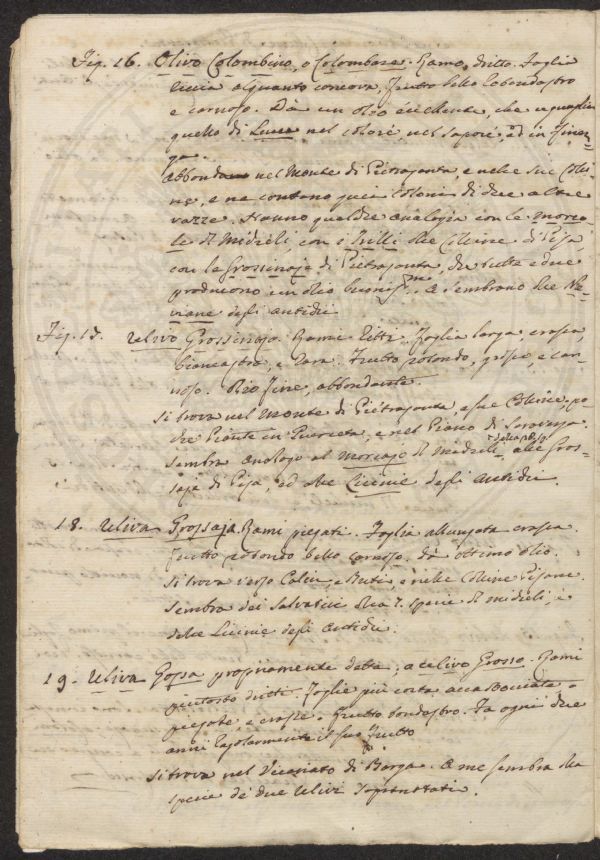 Fig. 16. Olivo Colombino, o Colombare. Ramo dritto. Foglia
liscia alquanto concava, Frutto bello tondastro
e carnoso. Dà un olio eccellente, che uguaglia
quello di Lucca nel colore, nel sapore, ed in finez-
za.
Abbonda nel Monte di Pietrasanta, e nelle sue Colli-
ne, e ne contano quei coloni di due altre
razze. Hanno qualche analogia con le morca-
je di Micheli, con i Trilli delle Colline di Pisa,
con le Grossinaje di Pietrasanta, che tutte e due
producono un olio buoniss.mo. E sembrano le
degli antichi.
Fig. 17. Ulivo Grossinajo. Rami fitti. Foglia larga, crassa,
biancastra, e rara. Frutto rotondo, grosso, e car-
noso. Olio fine, abbondante.
Si trova nel Monte di Pietrasanta, e sue Colline, po-
che Piante in Querceta, e nel Piano di Seravezza.
Sembra analogo al morcajo di Micheli, alle Gros-
saje di Pisa, ed alle Licinie degli Antichi.
18. Uliva Grossaja. Rami piegati. Foglia allungata crassa.
Frutto rotondo bello carnoso. dà ottimo olio.
Si trova verso Calci, e Buti, e nelle Colline Pisane.
Sembra dei Salvatici della 7. specie di Micheli, e
delle Licinie degli Antichi.
19. Uliva Gossa propriamente detta; o Ulivo Grosso. Rami
piuttosto dritti. Foglie più corta accartocciata o
piegate, e crasse. Frutto tondastro. Fa ogni due
anni regolarmente il suo Frutto
Si trova nel Vicariato di Barga. A me sembra della
specie de' due Ulivi soprannotati.